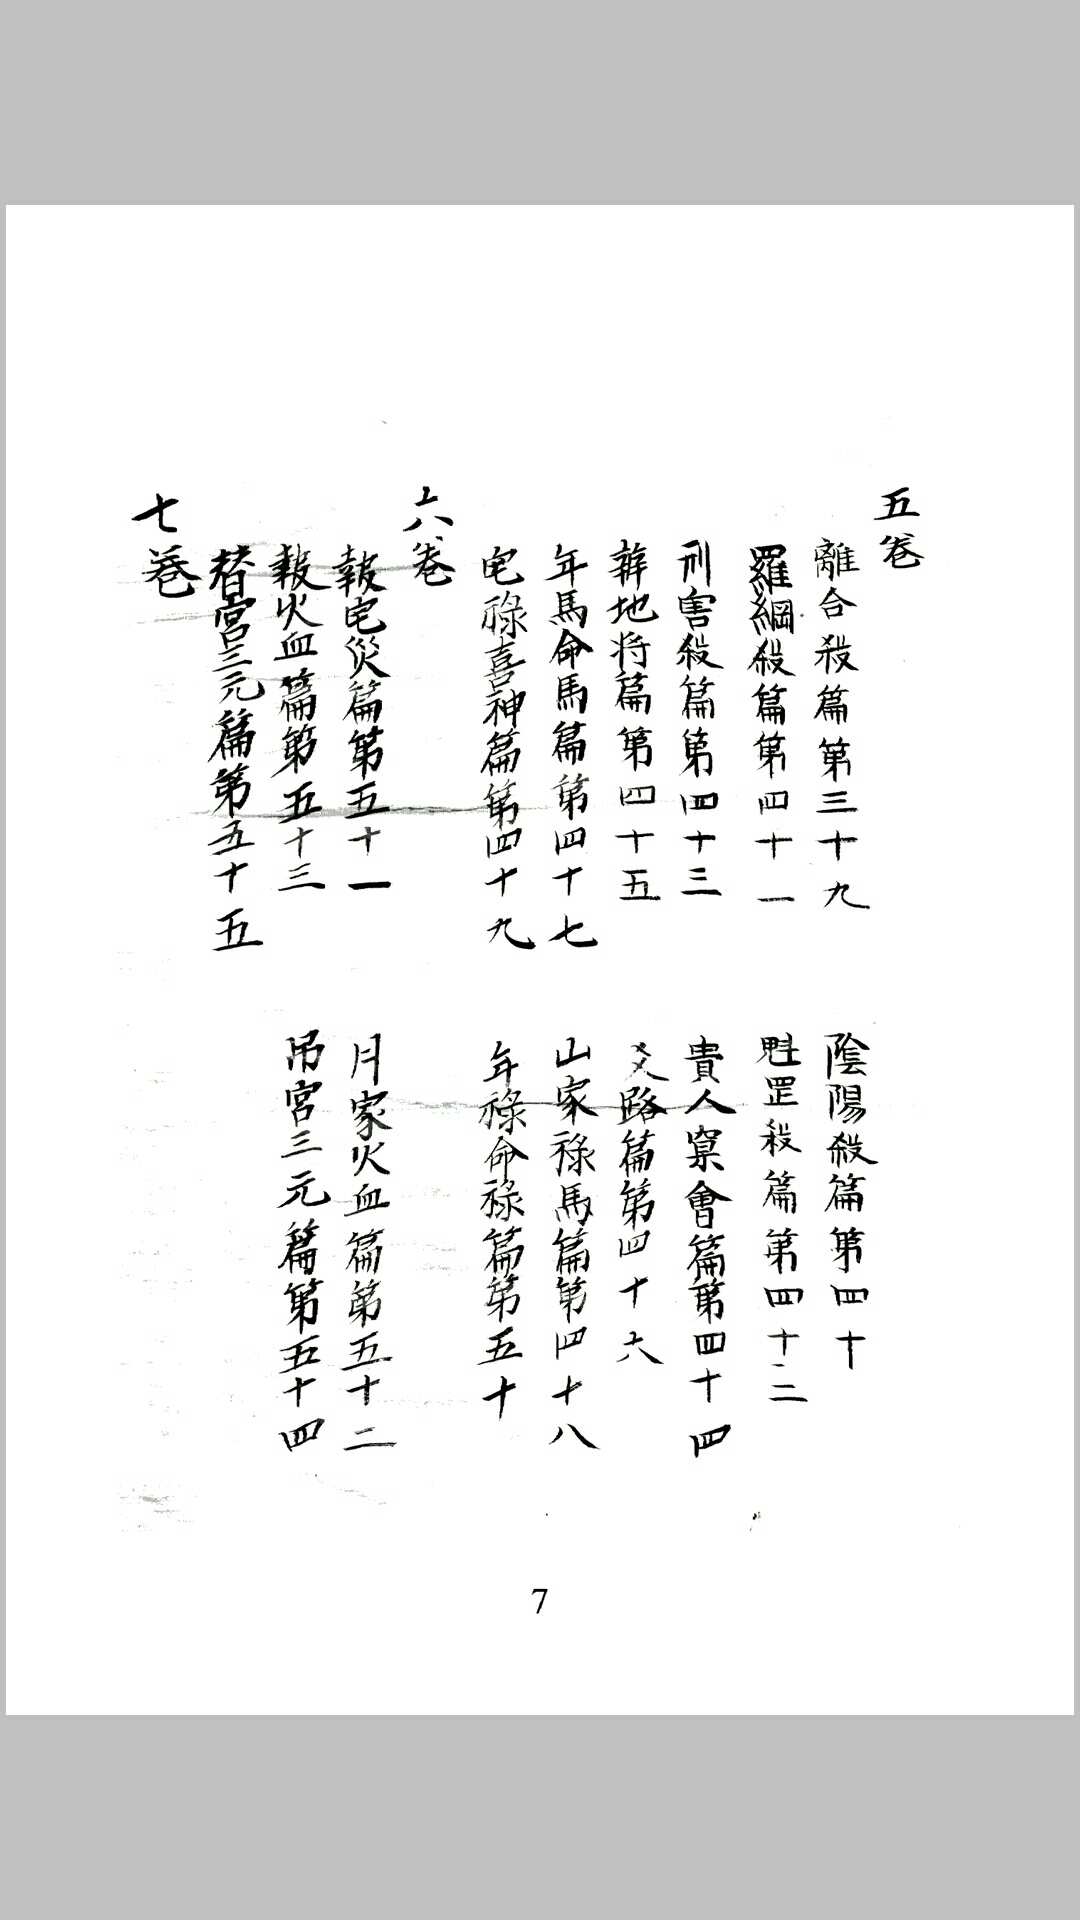 五卷
離合殺篇第三十九
陰陽殺篇第四十
羅綱殺篇第四十一
魁罡殺篇第四十二
刑害殺篇第四十三
貴人窠會篇第四十四
辨地将篇第四十五
交路篇第四十六
年馬命馬篇第四十七
山家祿馬篇第四十八
宅祿喜神篇第四十九
年祿命祿篇第五十
六卷
報宅災篇第五十一
月家火血篇第五十二
報火血篇第五十三
吊宮三元篇第五十四
替宮三元篇第五十五
七卷
7